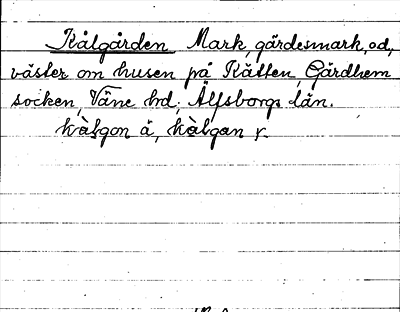 Kålgården Mark, gärdesmark, od,
väster om husen på Kätten, Gärdhem
socken, Väne hd, Älfsborgs län.
kàlgon å, kàlgan r.